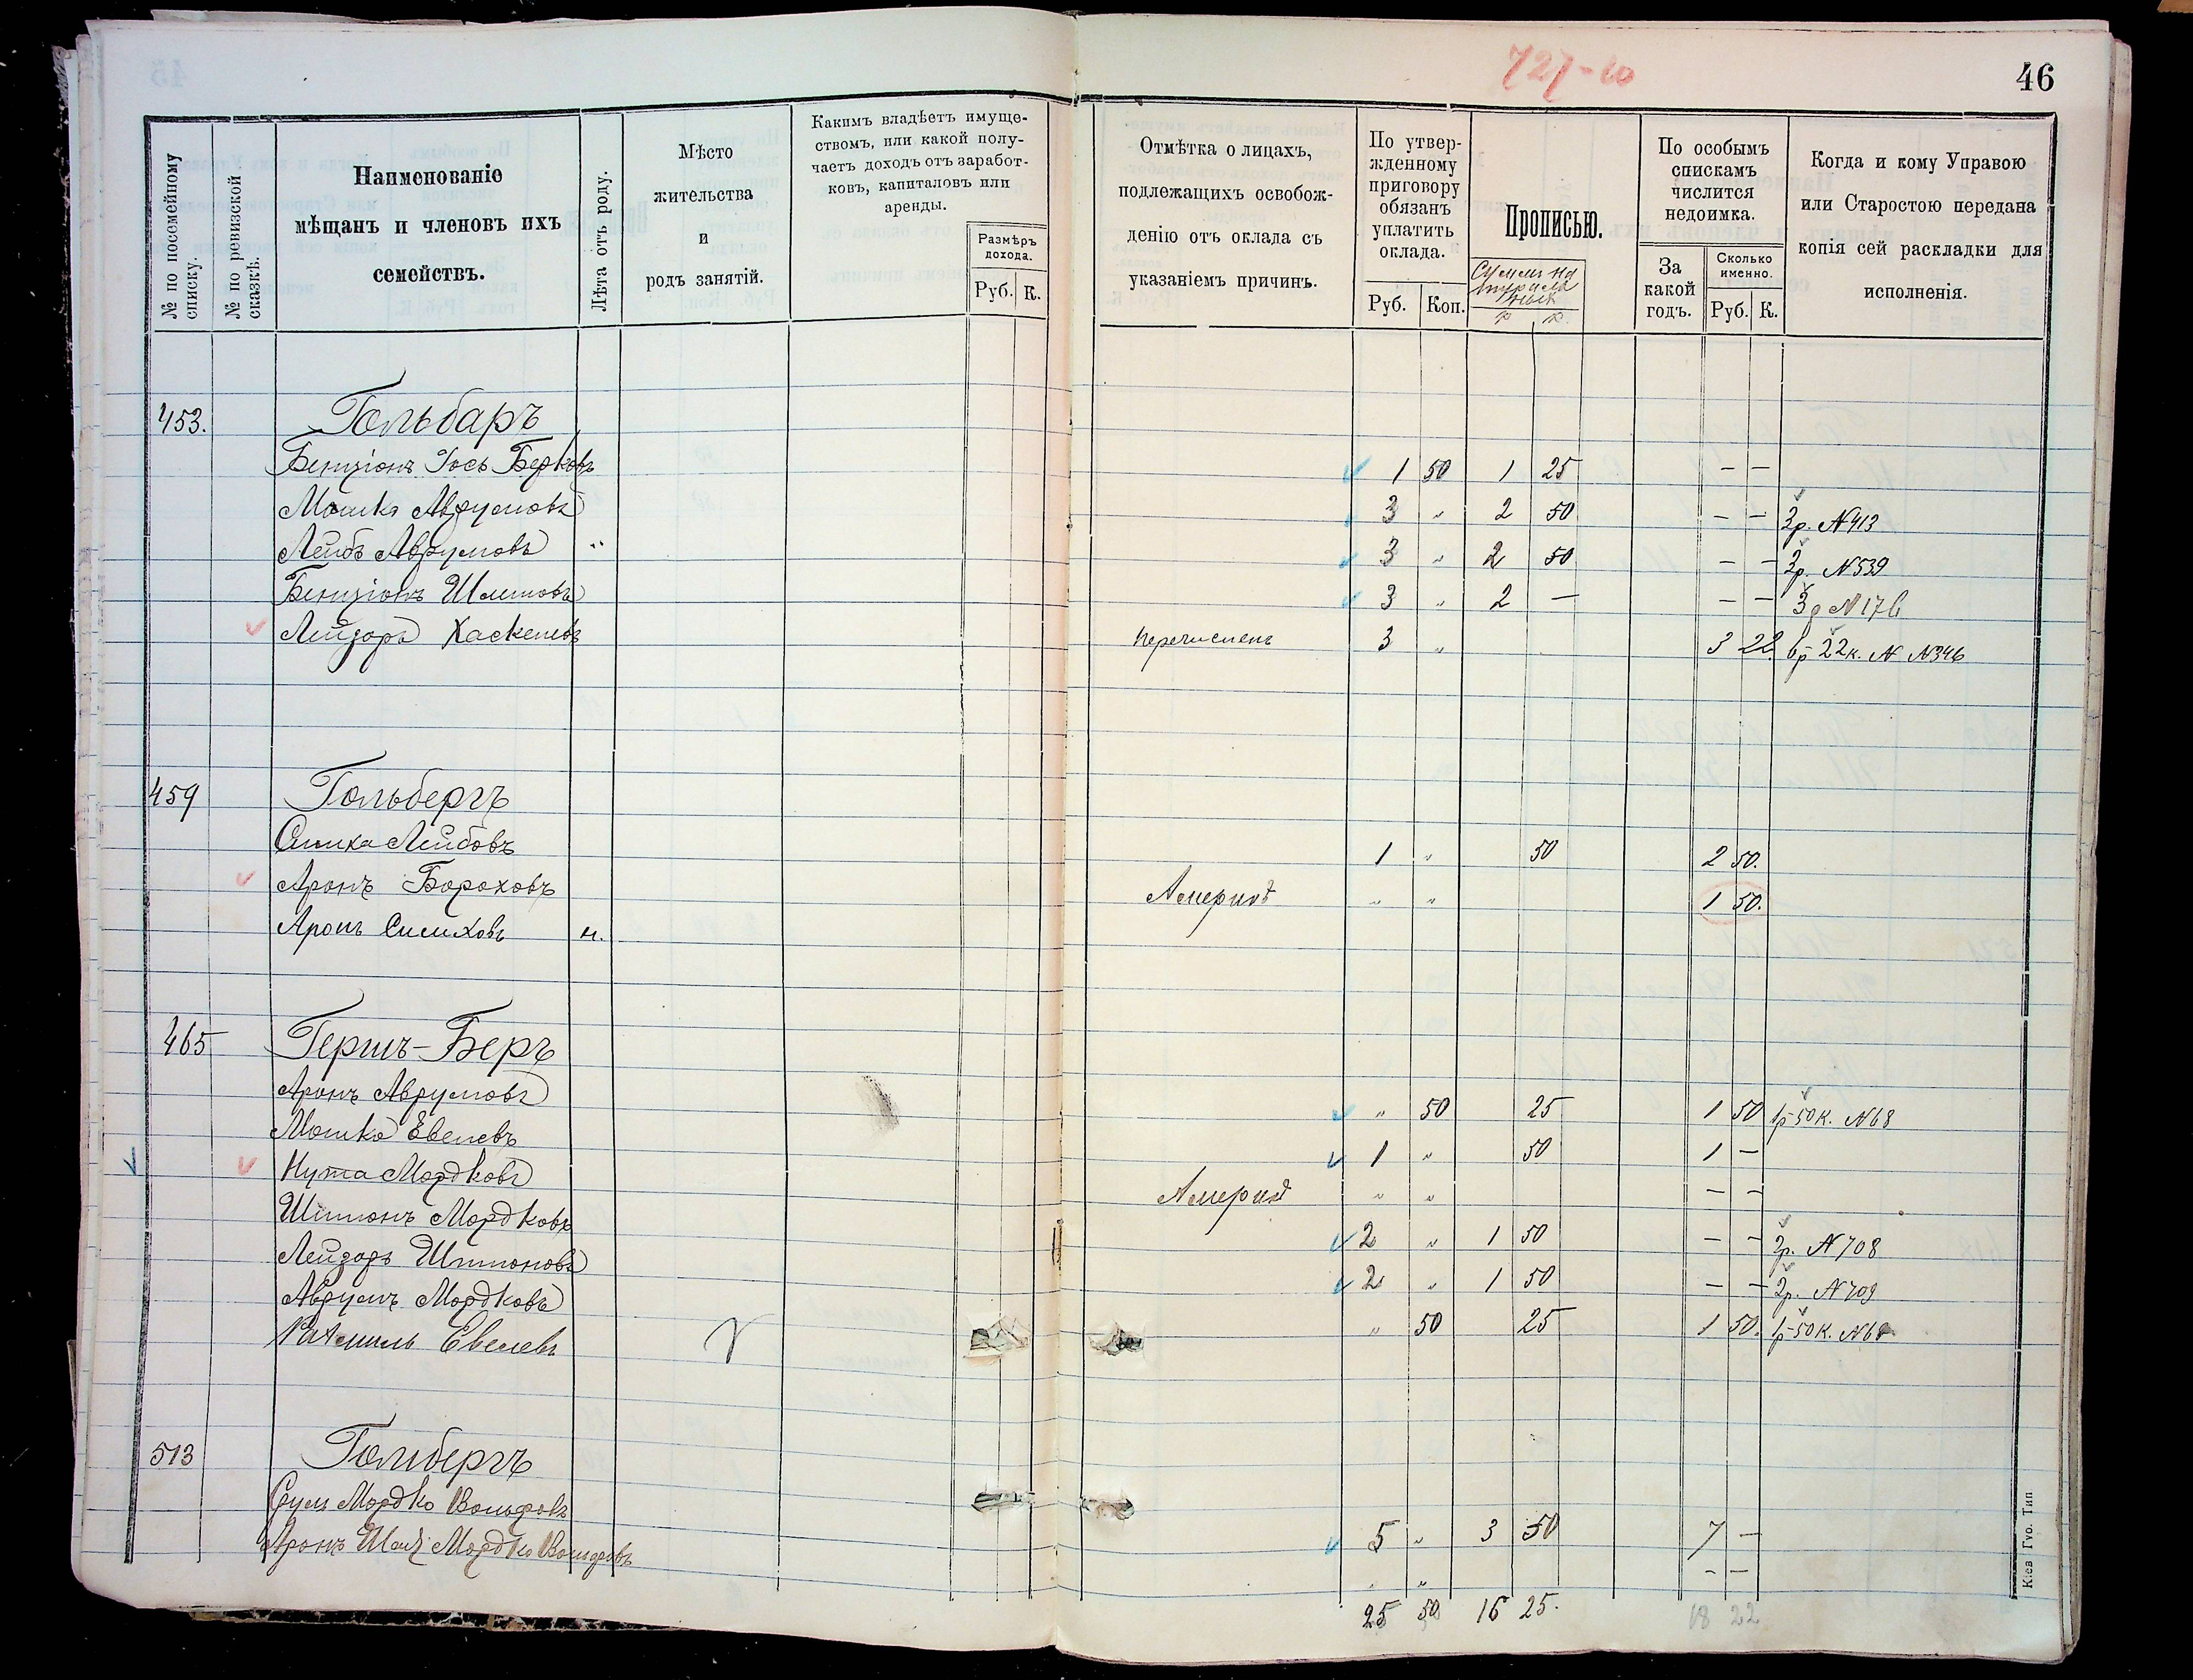 727-10
46
№ по посемейному списку.
№ по ревизской сказкѣ.
Наименованіе
мѣщанъ и членовъ ихъ
семействъ.
Лѣта отъ роду.
Мѣсто
жительства
и
родъ занятій.
Какимъ владѣетъ имуще-
ствомъ, или какой полу-
чаетъ доходъ отъ заработ-
ковъ, капиталовъ или
аренды.
Размѣръ
дохода.
Руб. К.
Отмѣтка о лицахъ,
подлежащихъ освобож-
денію отъ оклада съ
указаніемъ причинъ.
По утвер-
жденному
приговору
обязанъ
уплатить
оклада.
Руб. Коп.
Прописью.
По особымъ
спискамъ
числится
недоимка.
За
какой
годъ.
Сколько
именно.
Руб. К.
Когда и кому Управою
или Старостою передана
копія сей раскладки для
исполненія.
453. Гольбаръ
Бенціонъ Іось Берковъ 1 50 1 25 — —
Мошко Аврумовъ 3 „ 2 50 — — 3р. N413
Лейбъ Аврумовъ „ 3 „ 2 50 — — 3р. N539
Бенціонъ Шлемовъ 3 „ 2 — — — 3р N176
Лейзоръ Хаскелевъ перечисленъ 3 „ 3 22. 6р 22к. N N346
459 Гольбергъ
Симха Лейбовъ 1 „ 50 2 50.
Аронъ Бороховъ Америкѣ „ „ 1 50.
Аронъ Симховъ н.
465 Гершъ-Беръ
Аронъ Аврумовъ „ 50 25 1 50 1р 50к. N68
Мошко Евелевъ 1 „ 50 1 —
Нута Мордковъ Америкѣ „ „ — —
Шимонъ Мордковъ 2 „ 1 50 — — 2р. N708
Лейзоръ Шимоновъ 2 „ 1 50 — — 2р. N709
Аврумъ Мордковъ „ 50 25 1 50. 1р 50к. N68
Евелевъ
513 Голбергъ
Срулъ Мордко Вольфовъ 5 „ 3 50 7 —
Аронъ Мордко Вольфовъ „ — —
25 50 16 25. 18 22
Кіев Губ. Тип